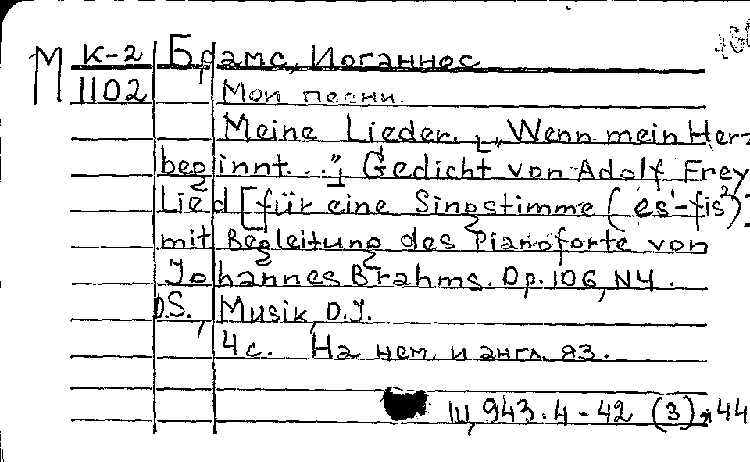 М К-2 Брамс, Иоганнос
1102 Мои песни.
Meine Lieder. [„Wenn mein Herz
beginnt...“] Gedicht von Adolf Frey
Lied [für eine Singstimme (es'-fis²)]
mit Begleitung des Pianoforte von
Johannes Brahms. Op. 106, N4.
D.S., Musik, D.J.
4 с. На нем. и англ. яз.
Ш, 943.4-42 (3), 44